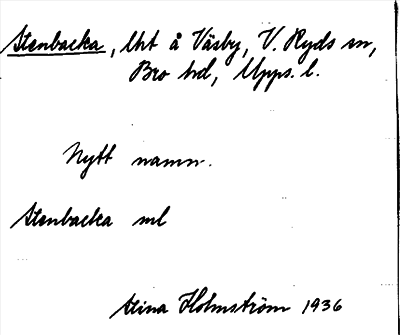 Stenbacka, lht å Väsby, V. Ryds sn,
Bro hd, Upps. l.
Nytt namn.
Stenbacka ml
Stina Holmström 1936